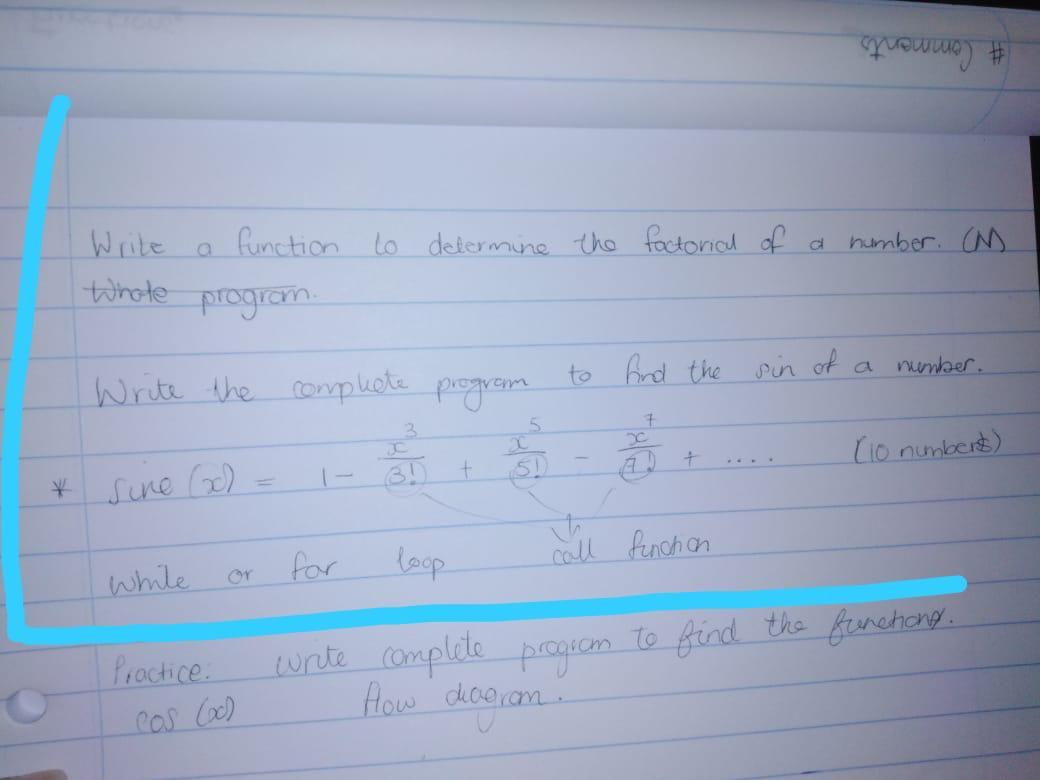 # Comments
Write a function to determine the factorial of a number. (N)
Whole program.
Write the complete program to find the sin of a number.
* Sine (x) = 1 - x^3/3! + x^5/5! - x^7/7! + .... (10 numbers)
while or for loop call function
Practice: Write complete program to find the functions.
cos (x) flow diagram.